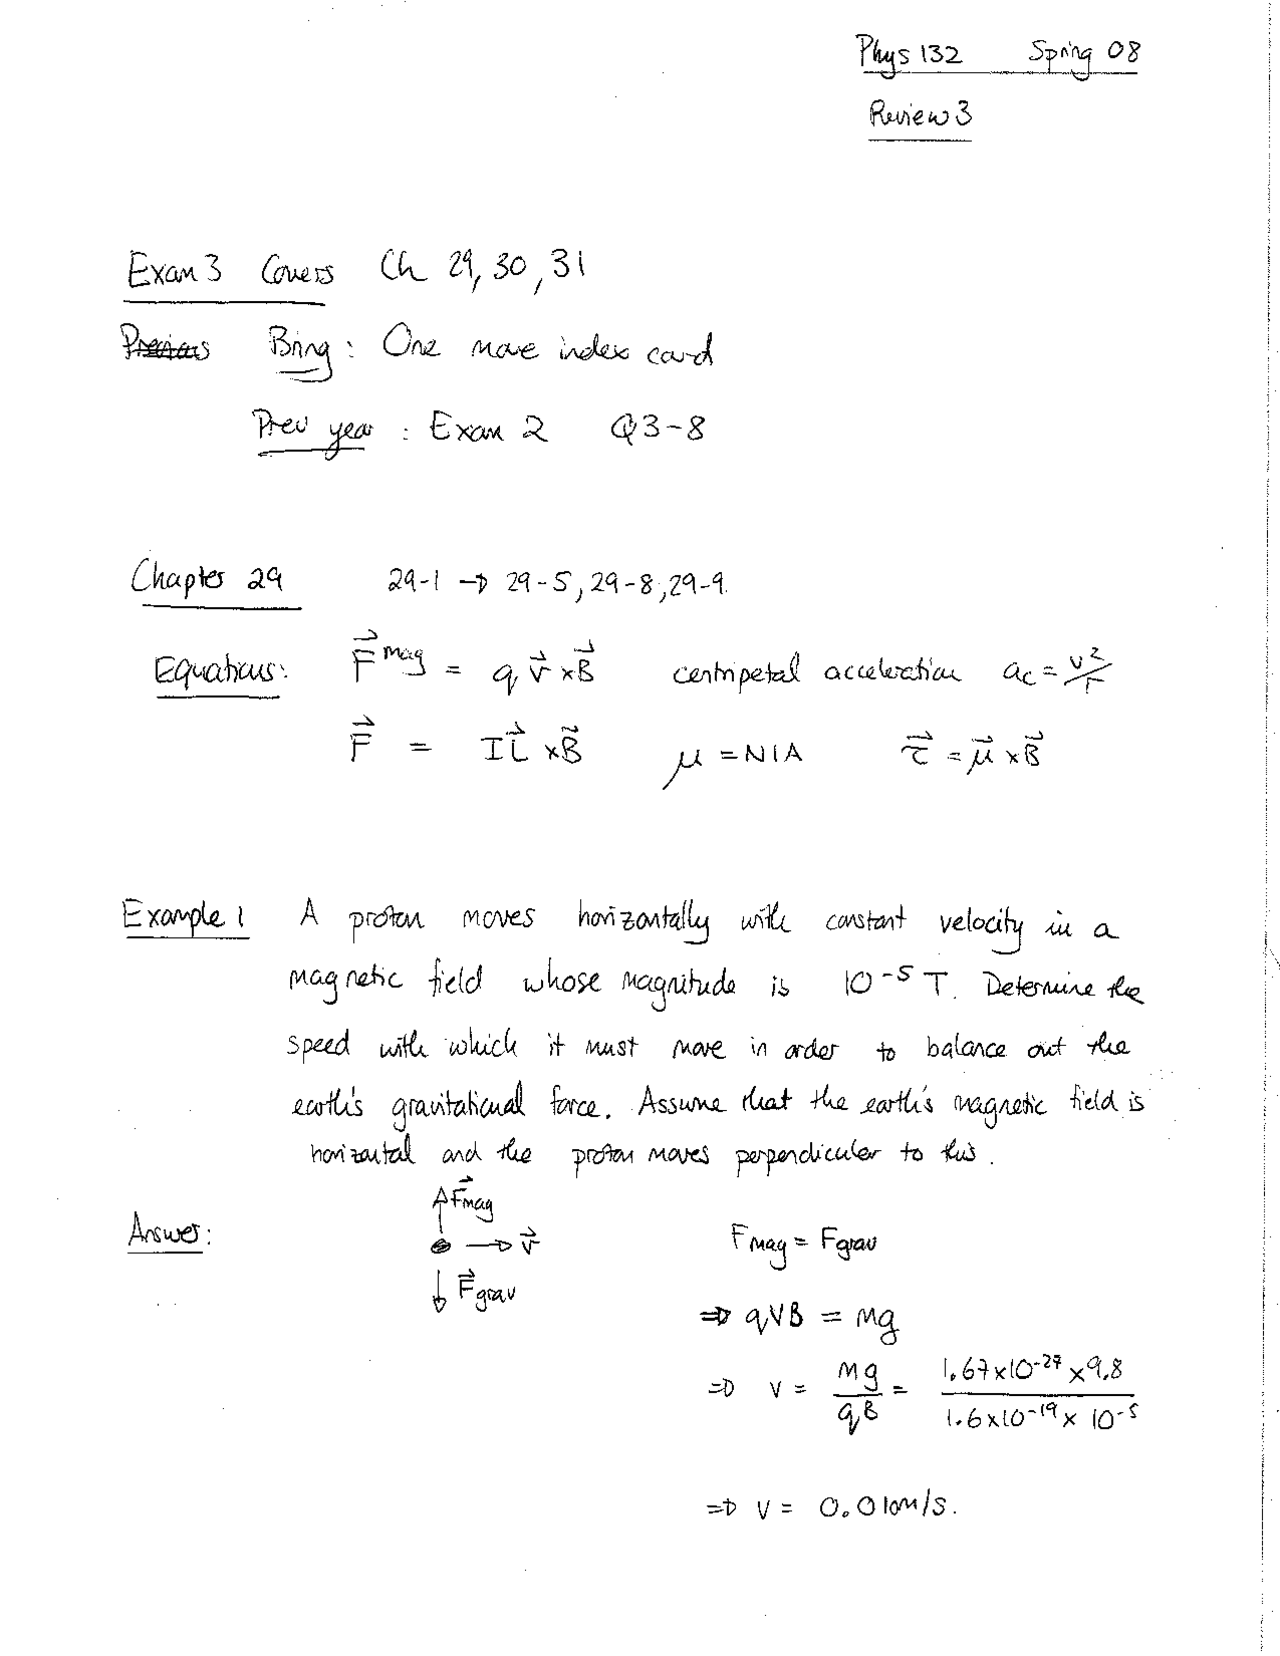 Phys 132 Spring 08
Review 3
Exam 3 Covers Ch 29, 30, 31
Previous Bring : One more index card
Prev year : Exam 2 Q3-8
Chapter 29 29-1 → 29-5, 29-8, 29-9.
Equations: F⃗ᵐᵃᵍ = q v⃗ × B⃗ centripetal acceleration a_c = v²/r
F⃗ = I L⃗ × B⃗ μ = NIA τ⃗ = μ⃗ × B⃗
Example 1 A proton moves horizontally with constant velocity in a
magnetic field whose magnitude is 10⁻⁵ T. Determine the
speed with which it must move in order to balance out the
earth's gravitational force. Assume that the earth's magnetic field is
horizontal and the proton moves perpendicular to this.
Answer:
F⃗mag
v⃗
F⃗grav
Fmag = Fgrav
⇒ qvB = mg
⇒ v = mg/qB = 1.67×10⁻²⁷ × 9.8 / 1.6×10⁻¹⁹ × 10⁻⁵
⇒ v = 0.010m/s.